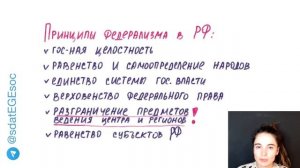 Принципы федерализма в РФ:
✓ гос-ная целостность
✓ равенство и самоопределение народов
✓ единство системы гос. власти
✓ верховенство федерального права
✓ разграничение предметов
ведения центра и регионов!
✓ равенство субъектов РФ
@sdatEGEsoc